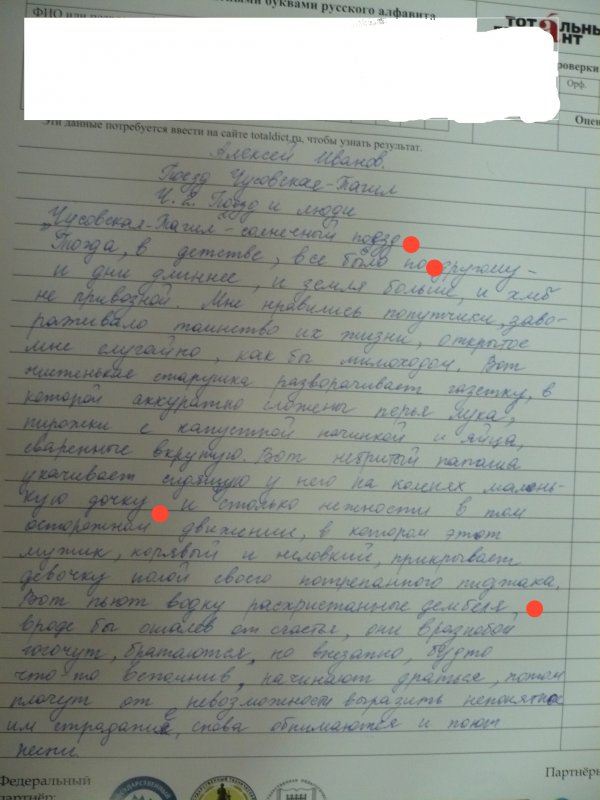 ными буквами русского алфавита
ФИО или
тотальный
нт
роверки
Орф.
Оцен
Эти данные потребуется ввести на сайте totaldict.ru, чтобы узнать результат.
Алексей Иванов.
Поезд Чусовская-Тагил
Ч. 2. Поезд и люди
„Чусовская-Тагил" - солнечный поезд
Тогда, в детстве, все было по другому -
и дни длиннее, и земля больше, и хлеб
не привозной. Мне нравились попутчики, заво-
раживало таинство их жизни, открытое
мне случайно, как бы мимоходом. Вот
чистенькая старушка разворачивает газетку, в
которой аккуратно сложены перья лука,
пирожки с капустной начинкой и яйца,
сваренные вкрутую. Вот небритый папаша
укачивает сидящую у него на коленях малень-
кую дочку и столько нежности в том
осторожном движении, в котором этот
мужик, корявый и неловкий, прикрывает
девочку полой своего потрепанного пиджака.
Вот пьют водку расхристанные дембеля,
вроде бы ошалев от счастья, они вразнобой
гогочут, братаются, но внезапно, будто
что-то вспомнив, начинают драться, потом
плачут от невозможности выразить непонятное
им страдание, снова обнимаются и поют
песни.
Федеральный
партнёр:
Партнёры